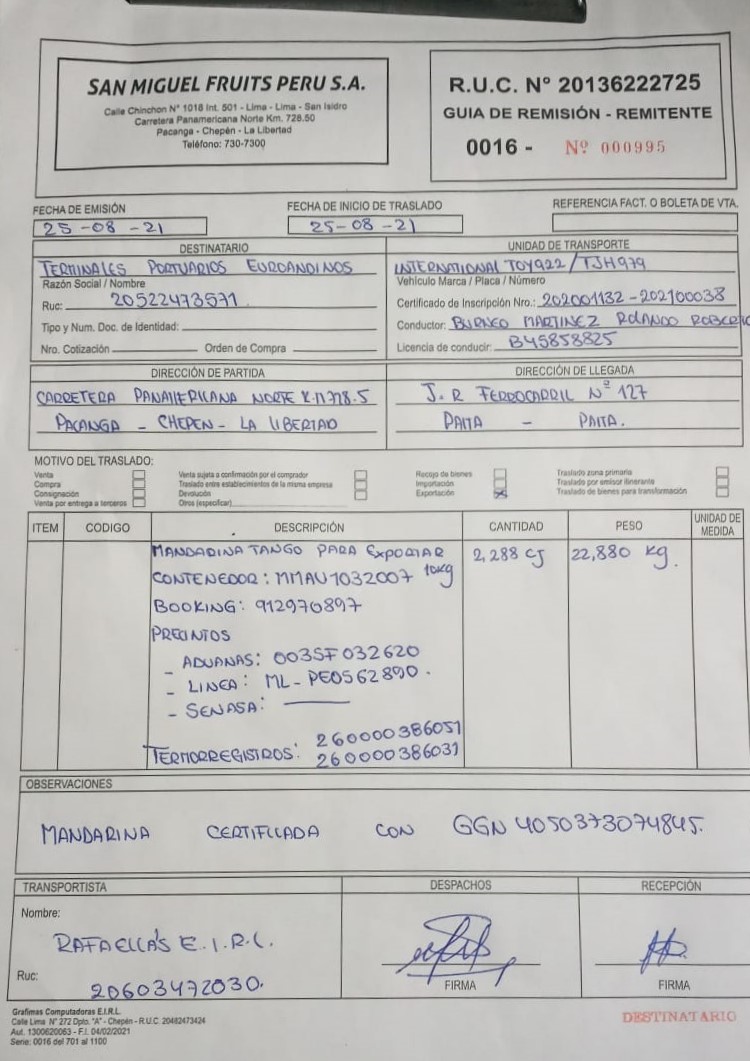 SAN MIGUEL FRUITS PERU S.A.
Calle Chinchon N° 1018 Int. 501 - Lima - Lima - San Isidro
Carretera Panamericana Norte Km. 728.50
Pacanga - Chepén - La Libertad
Teléfono: 730-7300
R.U.C. N° 20136222725
GUIA DE REMISIÓN - REMITENTE
0016 - Nº 000995
FECHA DE EMISIÓN
25-08-21
FECHA DE INICIO DE TRASLADO
25-08-21
REFERENCIA FACT. O BOLETA DE VTA.
DESTINATARIO
TERMINALES PORTUARIOS EUROANDINOS
Razón Social / Nombre
Ruc: 20522473571
Tipo y Num. Doc. de Identidad:
Nro. Cotización Orden de Compra
UNIDAD DE TRANSPORTE
INTERNATIONAL TOY922/TJH979
Vehículo Marca / Placa / Número
Certificado de Inscripción Nro.: 202001132-202100038
Conductor: BURNEO MARTINEZ ROLANDO ROBERTO
Licencia de conducir: B45858825
DIRECCIÓN DE PARTIDA
CARRETERA PANAMERICANA NORTE K.M 728.5
PACANGA - CHEPEN - LA LIBERTAD
DIRECCIÓN DE LLEGADA
J.R FERROCARRIL Nº 127
PAITA - PAITA.
MOTIVO DEL TRASLADO:
Venta
Compra
Consignación
Venta por entrega a terceros
Venta sujeta a confirmación por el comprador
Traslado entre establecimientos de la misma empresa
Devolución
Otros (especificar)
Recojo de bienes
Importación
Exportación
Traslado zona primario
Traslado por emisor itinerante
Traslado de bienes para transformación
ITEM CODIGO DESCRIPCIÓN CANTIDAD PESO UNIDAD DE MEDIDA
MANDARINA TANGO PARA EXPORTAR 2,288 CJ 22,880 kg.
10kg
CONTENEDOR: MMAU1032007
BOOKING: 912970897
PRECINTOS
- ADUANAS: 0035F032620
- LINEA: ML-PE0562890.
- SENASA:
TERMORREGISTROS: 260000386051
260000386031
OBSERVACIONES
MANDARINA CERTIFICADA CON GGN 4050373074845.
TRANSPORTISTA
Nombre:
RAFAELLA'S E.I.R.L.
Ruc:
20603472030.
DESPACHOS
FIRMA
RECEPCIÓN
FIRMA
Grafimas Computadoras E.I.R.L.
Calle Lima N° 272 Dpto. "A" - Chepén - R.U.C. 20482473424
Aut. 1300620063 - F.I. 04/02/2021
Serie: 0016 del 701 al 1100
DESTINATARIO